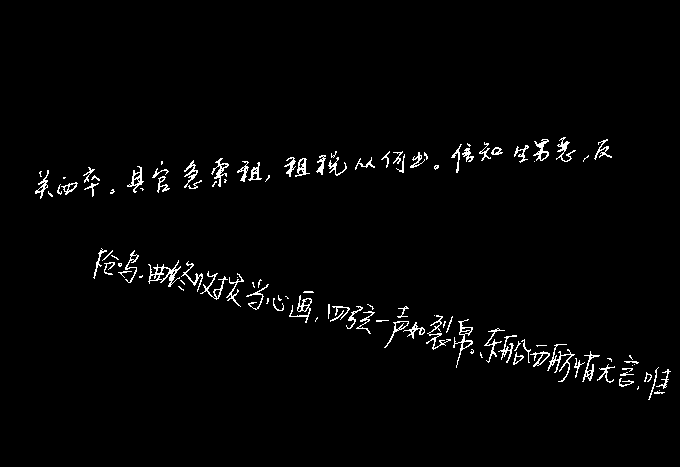 关西卒。县官急索租,租税从何出。信知生男恶,反
枪鸣.曲终收拨当心画,四弦一声如裂帛。东船西舫悄无言,唯